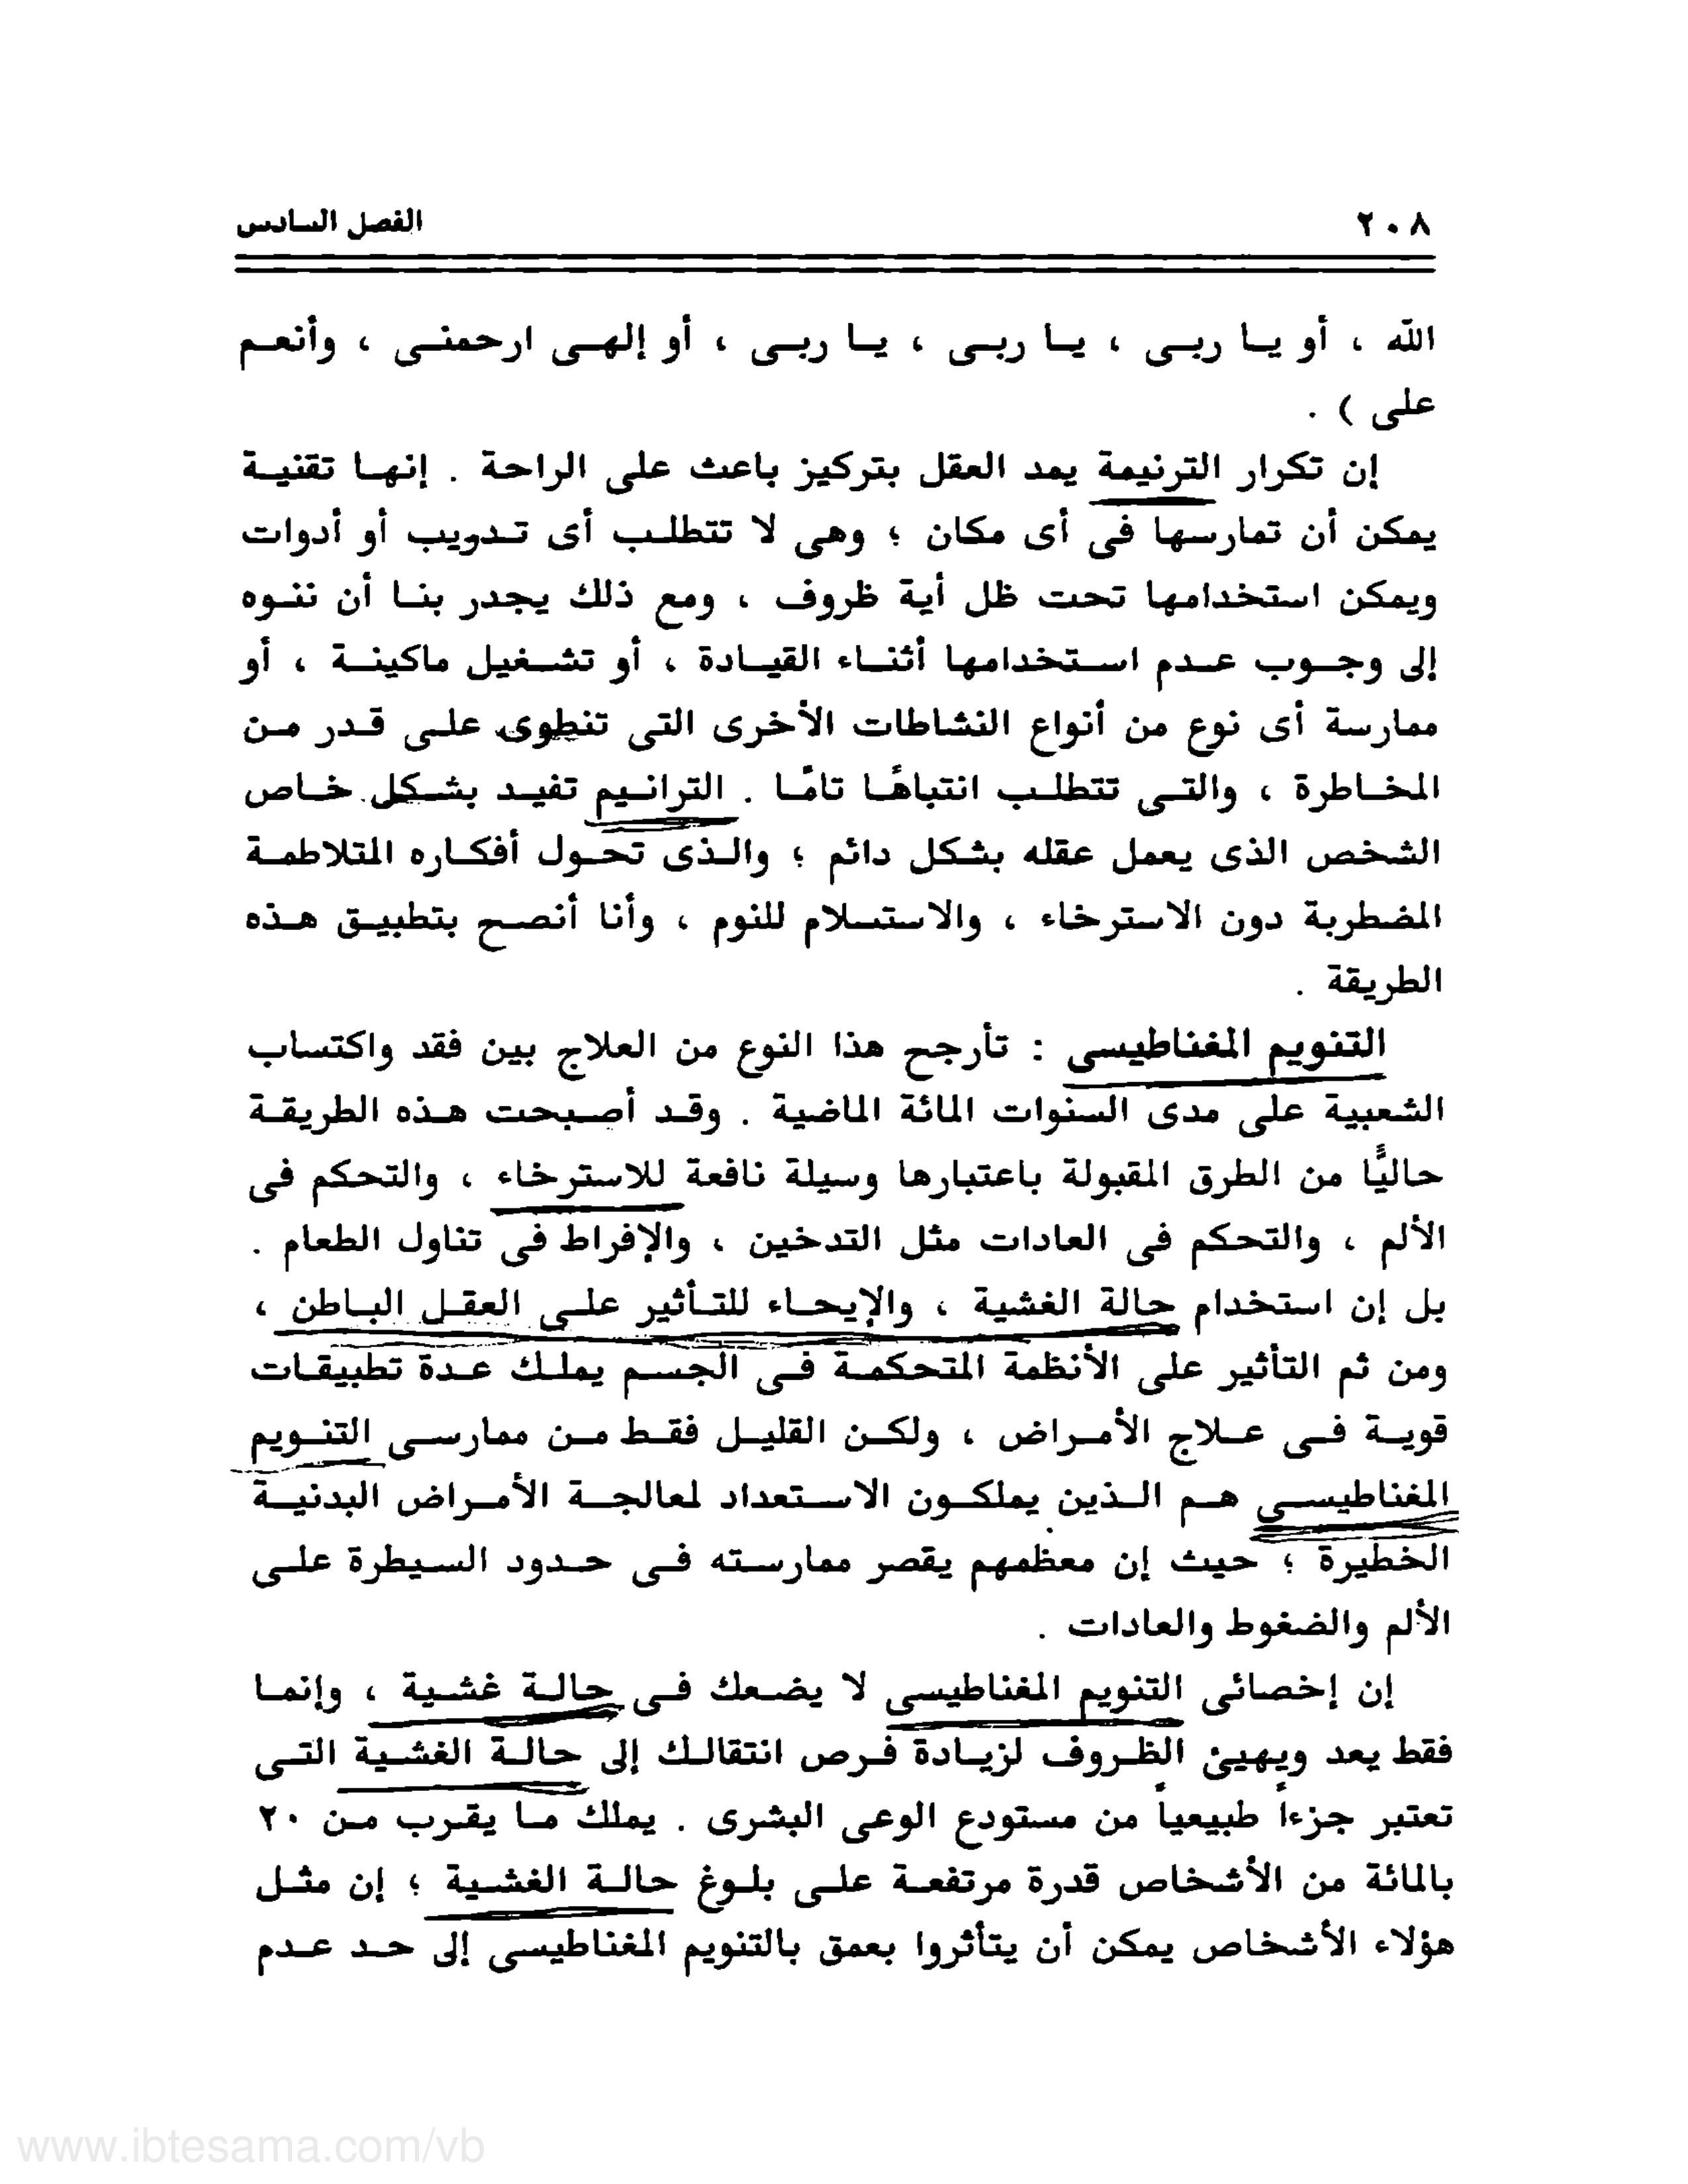 ٢٠٨ الفصل السادس
الله ، أو يا ربى ، يا ربى ، يا ربى ، أو إلهى ارحمنى ، وأنعم
على ) .
إن تكرار الترنيمة يمد العقل بتركيز باعث على الراحة . إنها تقنية
يمكن أن تمارسها فى أى مكان ؛ وهى لا تتطلب أى تدريب أو أدوات
ويمكن استخدامها تحت ظل أية ظروف ، ومع ذلك يجدر بنا أن ننوه
إلى وجوب عدم استخدامها أثناء القيادة ، أو تشغيل ماكينة ، أو
ممارسة أى نوع من أنواع النشاطات الأخرى التى تنطوى على قدر من
المخاطرة ، والتى تتطلب انتباهًا تامًا . الترانيم تفيد بشكل خاص
الشخص الذى يعمل عقله بشكل دائم ؛ والذى تحول أفكاره المتلاطمة
المضطربة دون الاسترخاء ، والاستسلام للنوم ، وأنا أنصح بتطبيق هذه
الطريقة .
التنويم المغناطيسى : تأرجح هذا النوع من العلاج بين فقد واكتساب
الشعبية على مدى السنوات المائة الماضية . وقد أصبحت هذه الطريقة
حاليًّا من الطرق المقبولة باعتبارها وسيلة نافعة للاسترخاء ، والتحكم فى
الألم ، والتحكم فى العادات مثل التدخين ، والإفراط فى تناول الطعام .
بل إن استخدام حالة الغشية ، والإيحاء للتأثير على العقل الباطن ،
ومن ثم التأثير على الأنظمة المتحكمة فى الجسم يملك عدة تطبيقات
قوية فى علاج الأمراض ، ولكن القليل فقط من ممارسى التنويم
المغناطيسى هم الذين يملكون الاستعداد لمعالجة الأمراض البدنية
الخطيرة ؛ حيث إن معظمهم يقصر ممارسته فى حدود السيطرة على
الألم والضغوط والعادات .
إن إخصائى التنويم المغناطيسى لا يضعك فى حالة غشية ، وإنما
فقط يعد ويهيئ الظروف لزيادة فرص انتقالك إلى حالة الغشية التى
تعتبر جزءاً طبيعياً من مستودع الوعى البشرى . يملك ما يقرب من ٢٠
بالمائة من الأشخاص قدرة مرتفعة على بلوغ حالة الغشية ؛ إن مثل
هؤلاء الأشخاص يمكن أن يتأثروا بعمق بالتنويم المغناطيسى إلى حد عدم
www.ibtesama.com/vb